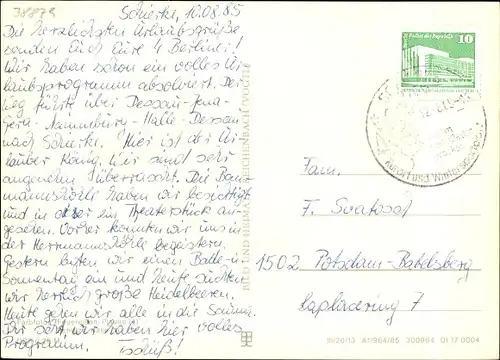 38879
Schierke, 10.08.85
Die herzlichsten Urlaubsgrüße
senden Euch Eure 4 Berliner!
Wir haben schon ein volles Ur-
laubsprogramm absolviert. Der
Weg führte über Dessau-Jena-
Gera-Naumburg-Halle-Dessau
nach Schierke. Hier ist der Ur-
lauber König. Wir sind sehr
angenehm überrascht. Die Bau-
mannshöhle haben wir besichtigt
und in ihr ein Theaterstück an-
gesehen. Vorher konnten wir uns in
der Hermannshöhle begeistern.
Gestern hatten wir einen Balle-
Sonnentag an und heute suchten
wir herrlich große Heidelbeeren.
Heute gehen wir alle in die Sauna.
Ihr seht wir haben hier volles
Programm. Tschüß!
BILD UND HEIMAT REICHENBACH (VOGTL)
Palast der Republik
10
DDR
Kurort und Wintersportpl
Fam.
F. Svatosch
1502 Potsdam-Babelsberg
Caplacering 7
III/26/13 A1/964/85 300964 01 17 0004